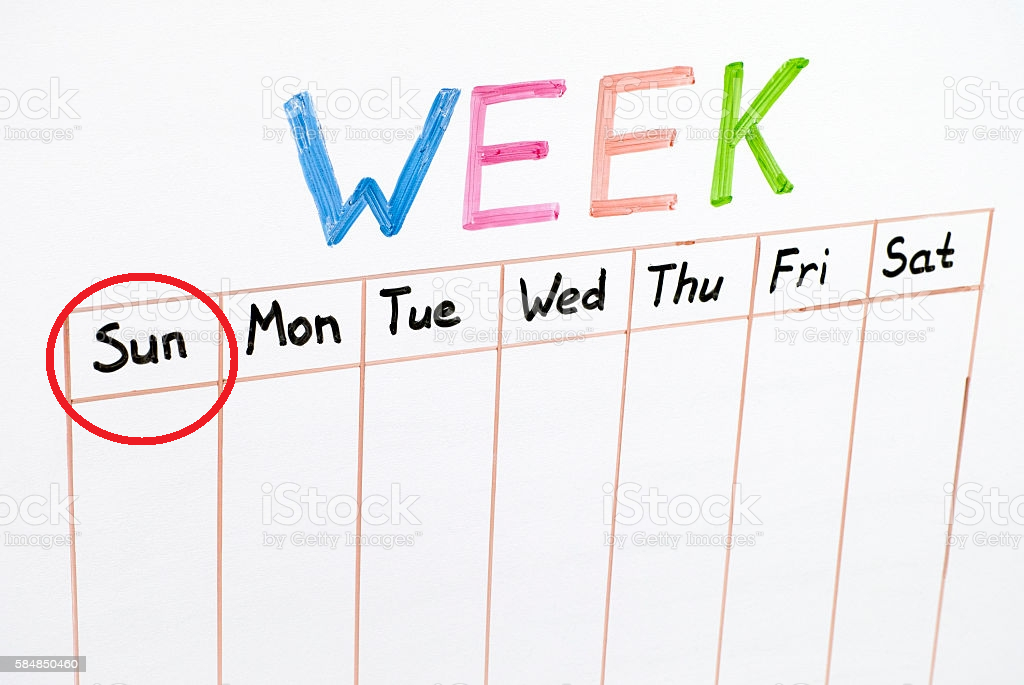 WEEK
Sun Mon Tue Wed Thu Fri Sat
iStock
by Getty Images™
584850460